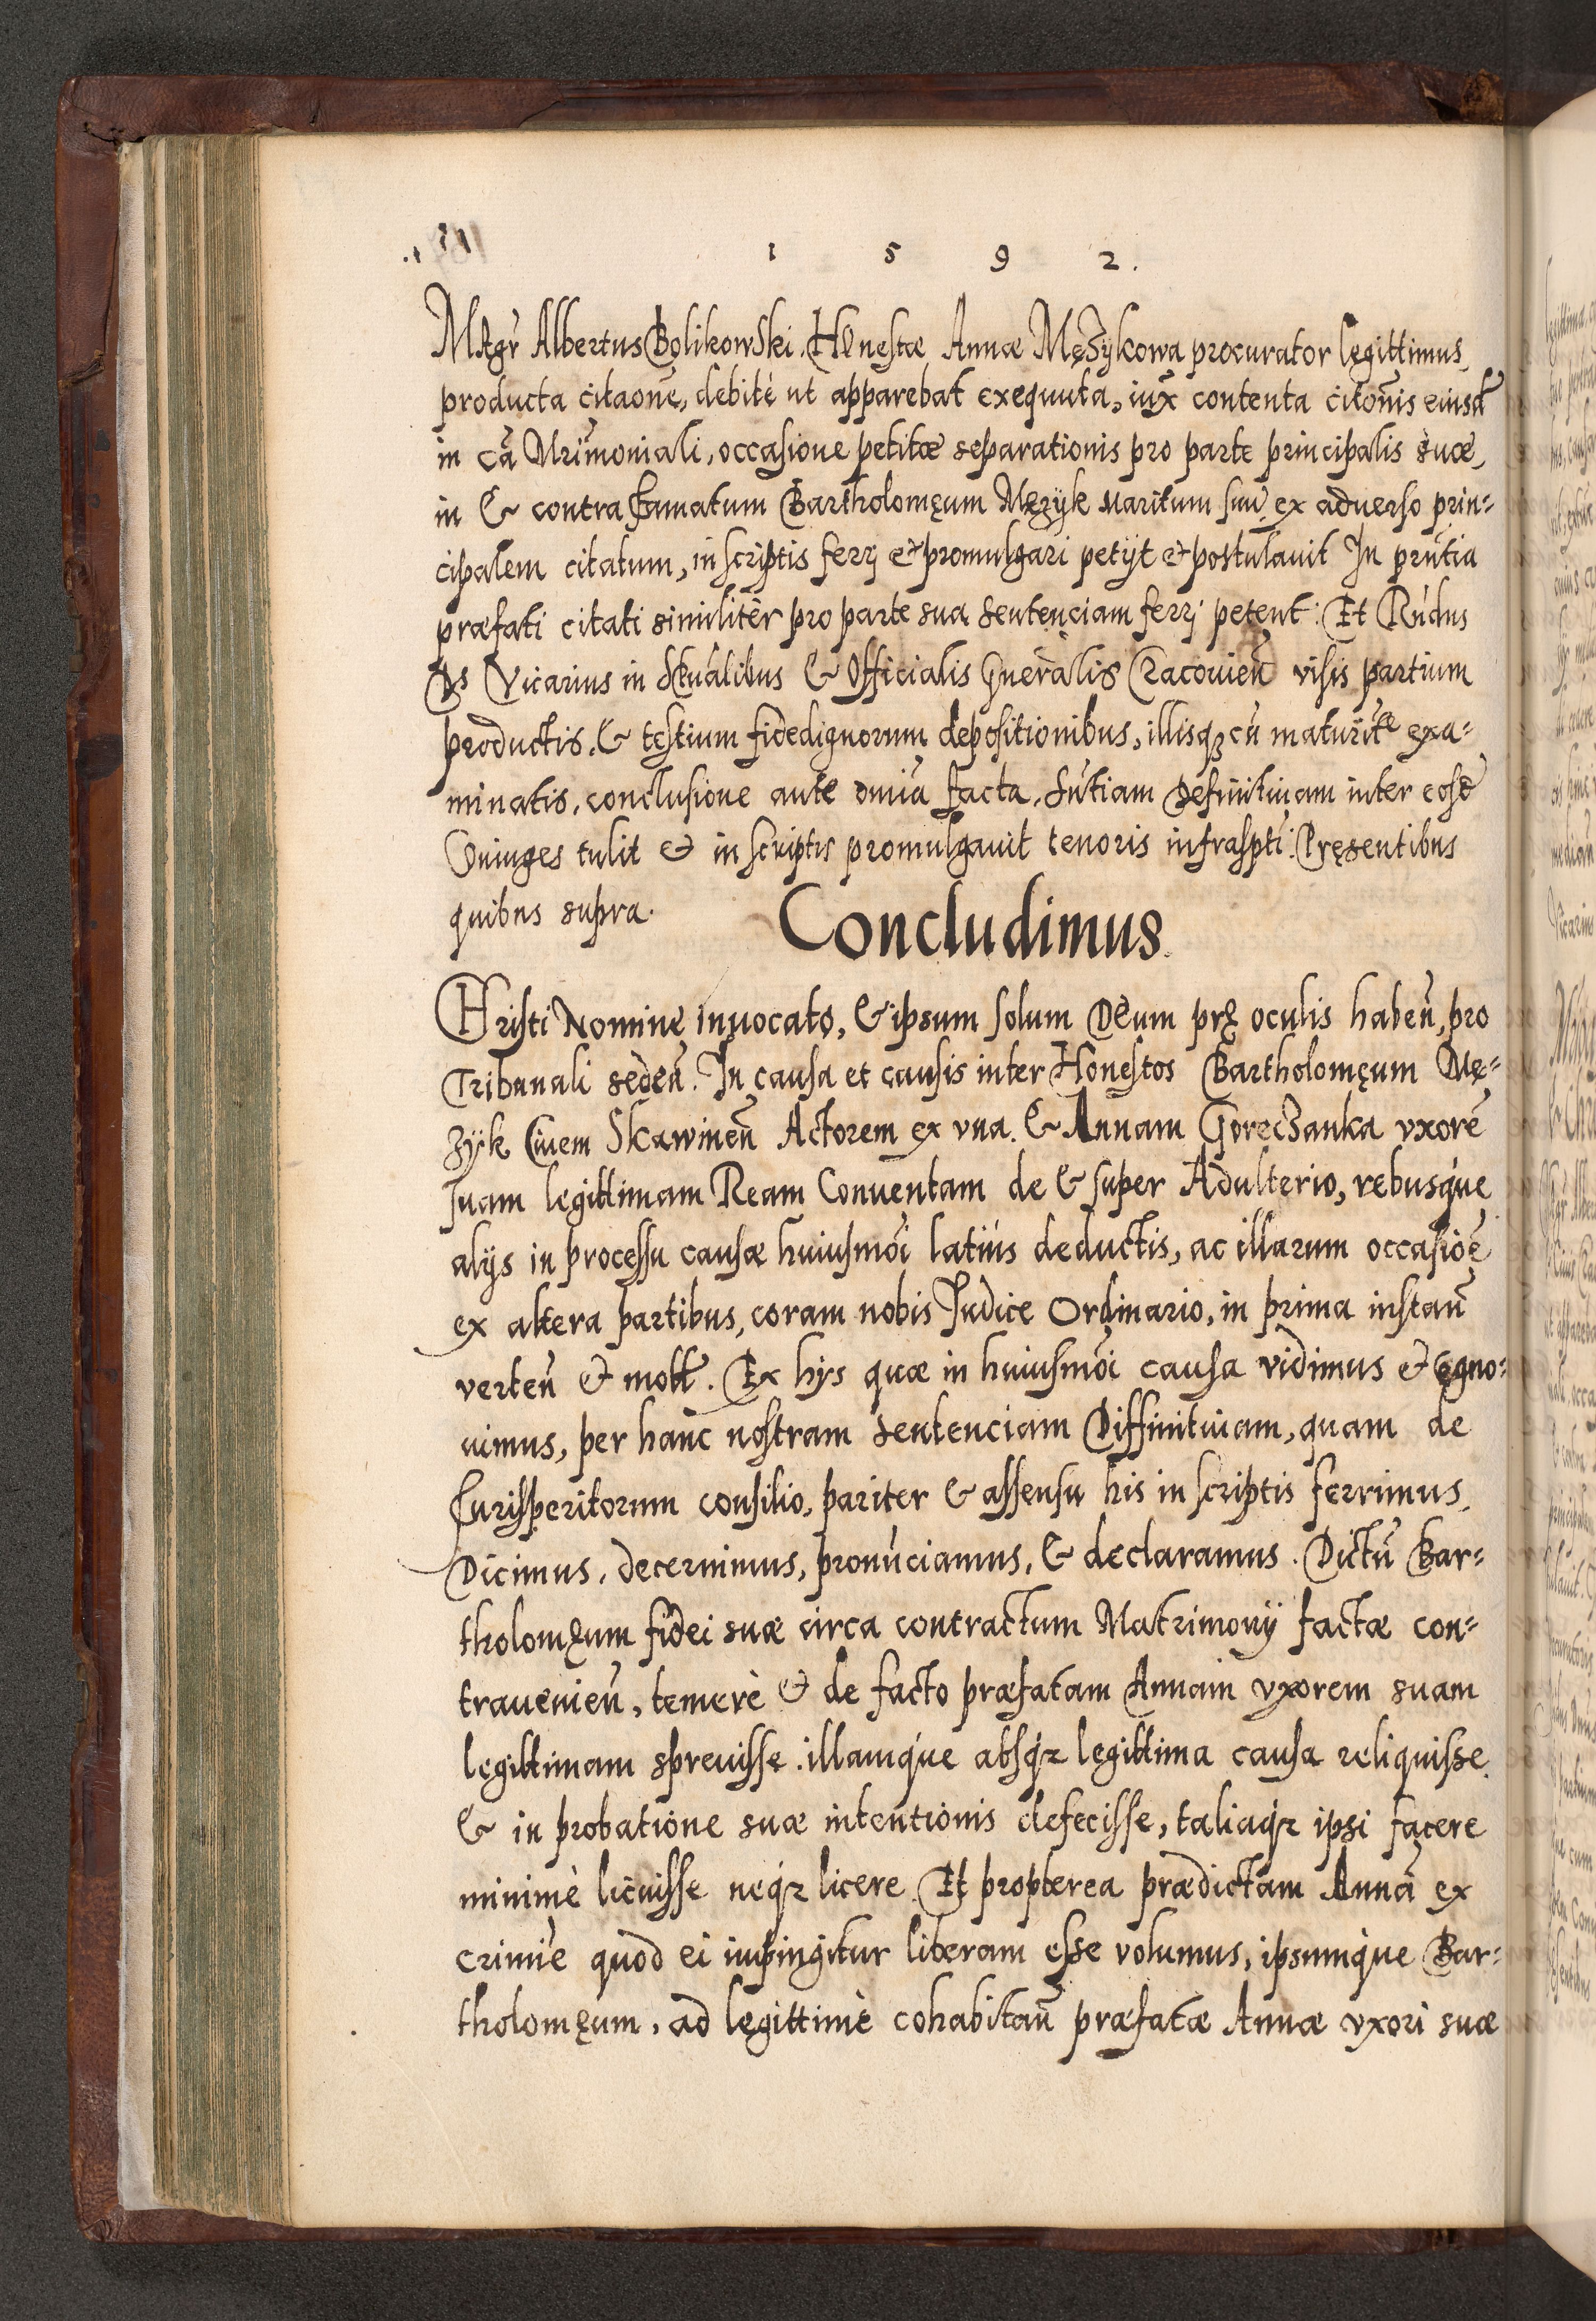 1 5 9 2.
Mgr̃ Albertus Bolikowski, Honestæ Annæ Męzykowa procurator legittimus,
producta citaõne, debitè ut apparebat exequuta, iux̃ contenta citõnis eiusd̃
in cã Mr̃imoniali, occasione petitæ separationis pro parte principalis suæ,
in & contra famatum Bartholomęum Męzÿk maritum suũ ex aduerso prin=
cipalem citatum, in scriptis ferrj et promulgari petijt et postulauit In pñtia
præfati citati similitèr pro parte sua Sentenciam ferrj petent: Et R̃ndus
Ds Vicarius in Sp̃ualibus & Officialis Gñeralis Cracouieñ visis partium
productis, & testium fidedignorum depositionibus, illisqꝫ cũ maturit̃e exa=
minatis, conclusione ante om̃ia facta, Sñtiam Definitiuam inter eosd̃
Coniuges tulit & in scriptis promulgauit tenoris infrasp̃ti: Pręsentibus
quibus supra.
Concludimus.
CHristi Nomine inuocato, & ipsum solum Deum prę oculis habeñ, pro
Tribunali sedeñ. In causa et causis inter Honestos Bartholomęum Mę=
zÿk Ciuem Skawineñ Actorem ex vna. & Annam Gorzczanka vxorẽ
suam legittimam Ream Conuentam de & super Adulterio, rebusque
alijs in processu causæ huiusmõi latiùs deductis, ac illarum occasiõe
ex altera partibus, coram nobis Judice Ordinario, in prima instañ
verteñ & mott̃. Ex hijs quæ in huiusmõi causa vidimus et cogno=
uimus, per hanc nostram Sentenciam Diffinitiuam, quam de
Iurisperitorum consilio, pariter & assensu his in scriptis ferrimus,
Dicimus, decernimus, pronũciamus, & declaramus. Dictũ Bar=
tholomęum fidei suæ circa contractum Matrimonij factæ con=
trauenieñ, temerè & de facto præfatam Annam vxorem suam
legittimam spreuisse, illamque absqꝫ legittima causa reliquisse,
& in probatione suæ intentionis defecisse, taliaqꝫ ipsi facere
minimè licuisse neqꝫ licere. Et propterea prædictam Annã ex
crimĩe quod ei impingitur liberam esse volumus, ipsumque Bar=
tholomęum, ad legittimè cohabitañ præfatæ Annæ vxori suæ